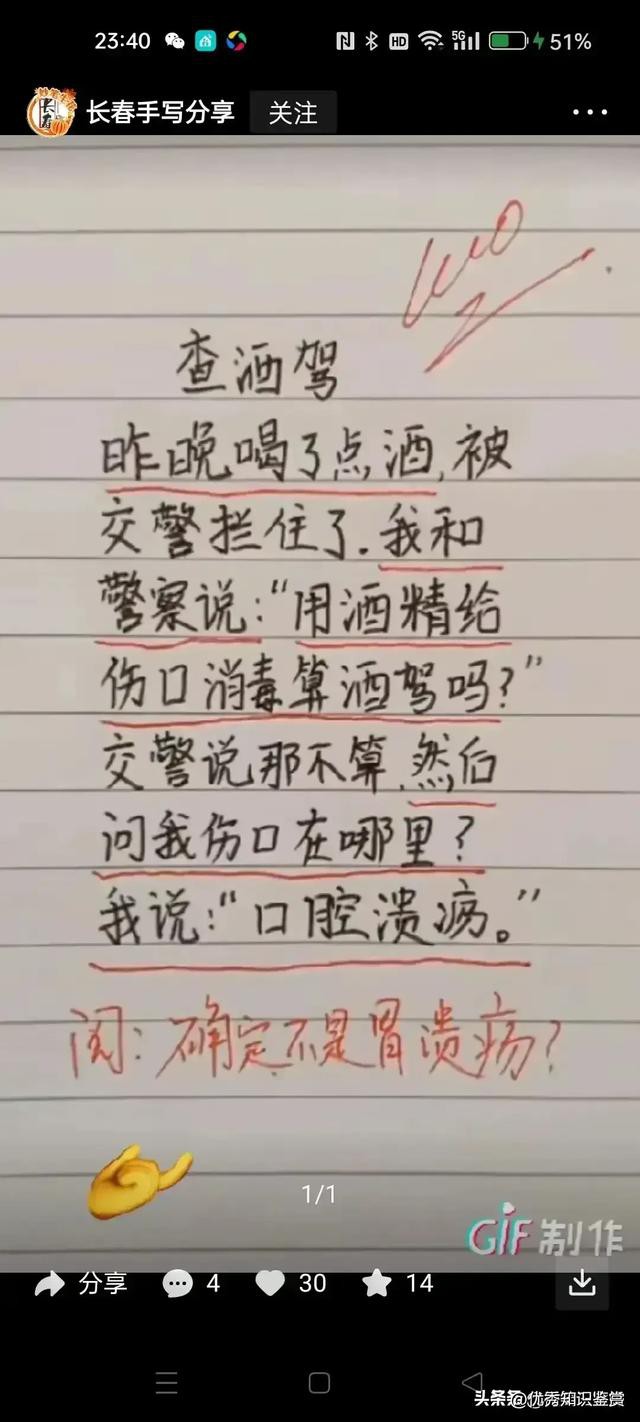 23:40 HD 5G 51%
长春手写分享 关注
查酒驾
昨晚喝了点酒,被
交警拦住了.我和
警察说:“用酒精给
伤口消毒算酒驾吗?”
交警说那不算,然后
问我伤口在哪里?
我说:“口腔溃疡。”
阅:确定不是胃溃疡?
1/1
GIF制作
分享 4 30 14
头条 @优秀知识鉴赏